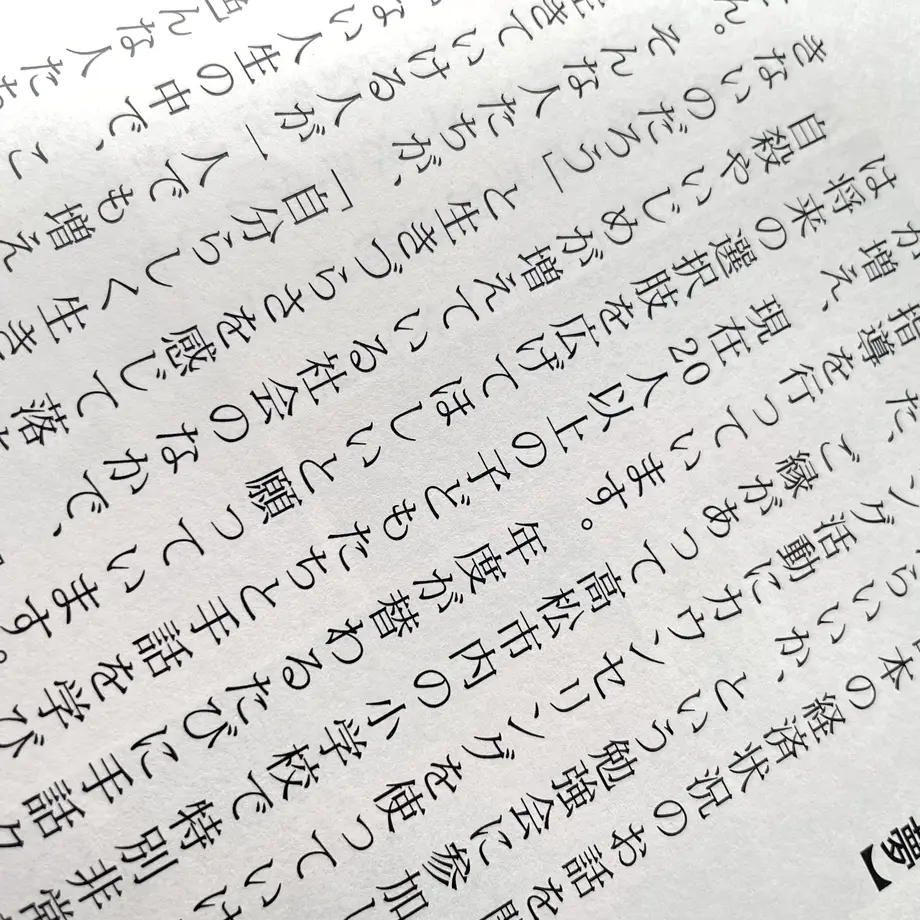 夢】
本の経済状況のお話を聞
らいいか、という勉強会に参加し
ング活動にカウンセリングを使っていけ
た、ご縁があって高松市内の小学校で特別非常
指導を行っています。年度が替わるたびに手話ク
が増え、現在20人以上の子どもたちと手話を学び
は将来の選択肢を広げてほしいと願っています。
自殺やいじめが増えている社会のなかで、「
きないのだろう」と生きづらさを感じて落
ん。そんな人たちが、「自分らしく生き
生きていける人が一人でも増え
ない人生の中で、こ
色んな人たち